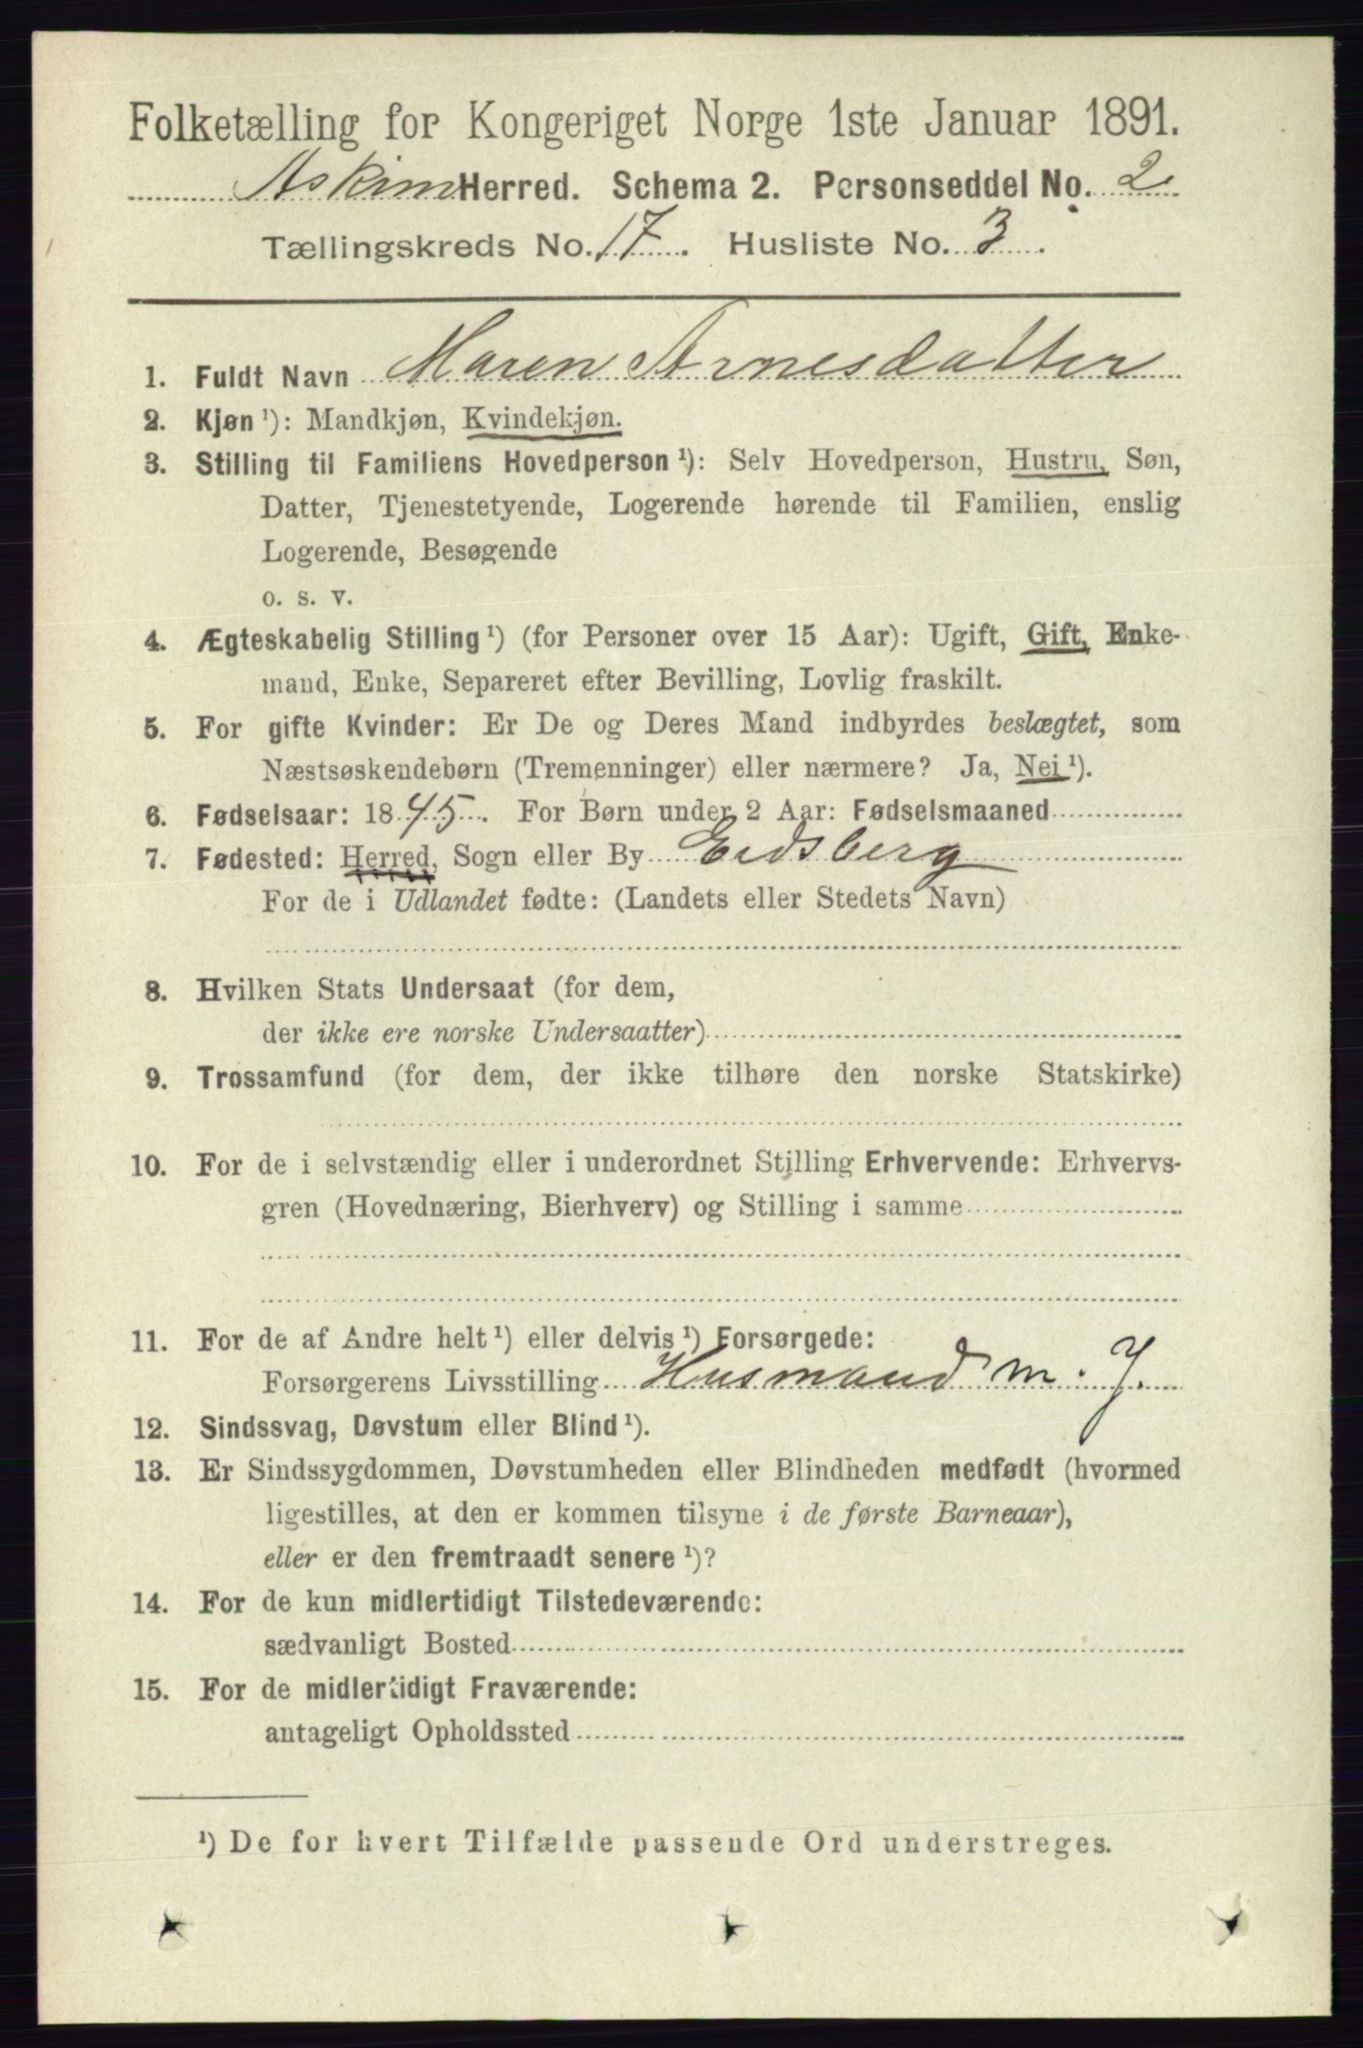 Folketælling for Kongeriget Norge 1ste Januar 1891.
Askim Herred. Schema 2. Personseddel No. 2
Tællingskreds No. 17. Husliste No. 3.
1. Fuldt Navn Maren Arnesdatter
2. Kjøn ¹): Mandkjøn, Kvindekjøn.
3. Stilling til Familiens Hovedperson ¹): Selv Hovedperson, Hustru, Søn,
Datter, Tjenestetyende, Logerende hørende til Familien, enslig
Logerende, Besøgende
o. s. v.
4. Ægteskabelig Stilling ¹) (for Personer over 15 Aar): Ugift, Gift, Enke-
mand, Enke, Separeret efter Bevilling, Lovlig fraskilt.
5. For gifte Kvinder: Er De og Deres Mand indbyrdes beslægtet, som
Næstsøskendebørn (Tremenninger) eller nærmere? Ja, Nei ¹).
6. Fødselsaar: 1845. For Børn under 2 Aar: Fødselsmaaned
7. Fødested: Herred, Sogn eller By Eidsberg
For de i Udlandet fødte: (Landets eller Stedets Navn)
8. Hvilken Stats Undersaat (for dem,
der ikke ere norske Undersaatter)
9. Trossamfund (for dem, der ikke tilhøre den norske Statskirke)
10. For de i selvstændig eller i underordnet Stilling Erhvervende: Erhvervs-
gren (Hovednæring, Bierhverv) og Stilling i samme
11. For de af Andre helt ¹) eller delvis ¹) Forsørgede:
Forsørgerens Livsstilling Husmand m. J.
12. Sindssvag, Døvstum eller Blind ¹).
13. Er Sindssygdommen, Døvstumheden eller Blindheden medfødt (hvormed
ligestilles, at den er kommen tilsyne i de første Barneaar),
eller er den fremtraadt senere ¹)?
14. For de kun midlertidigt Tilstedeværende:
sædvanligt Bosted
15. For de midlertidigt Fraværende:
antageligt Opholdssted
¹) De for hvert Tilfælde passende Ord understreges.